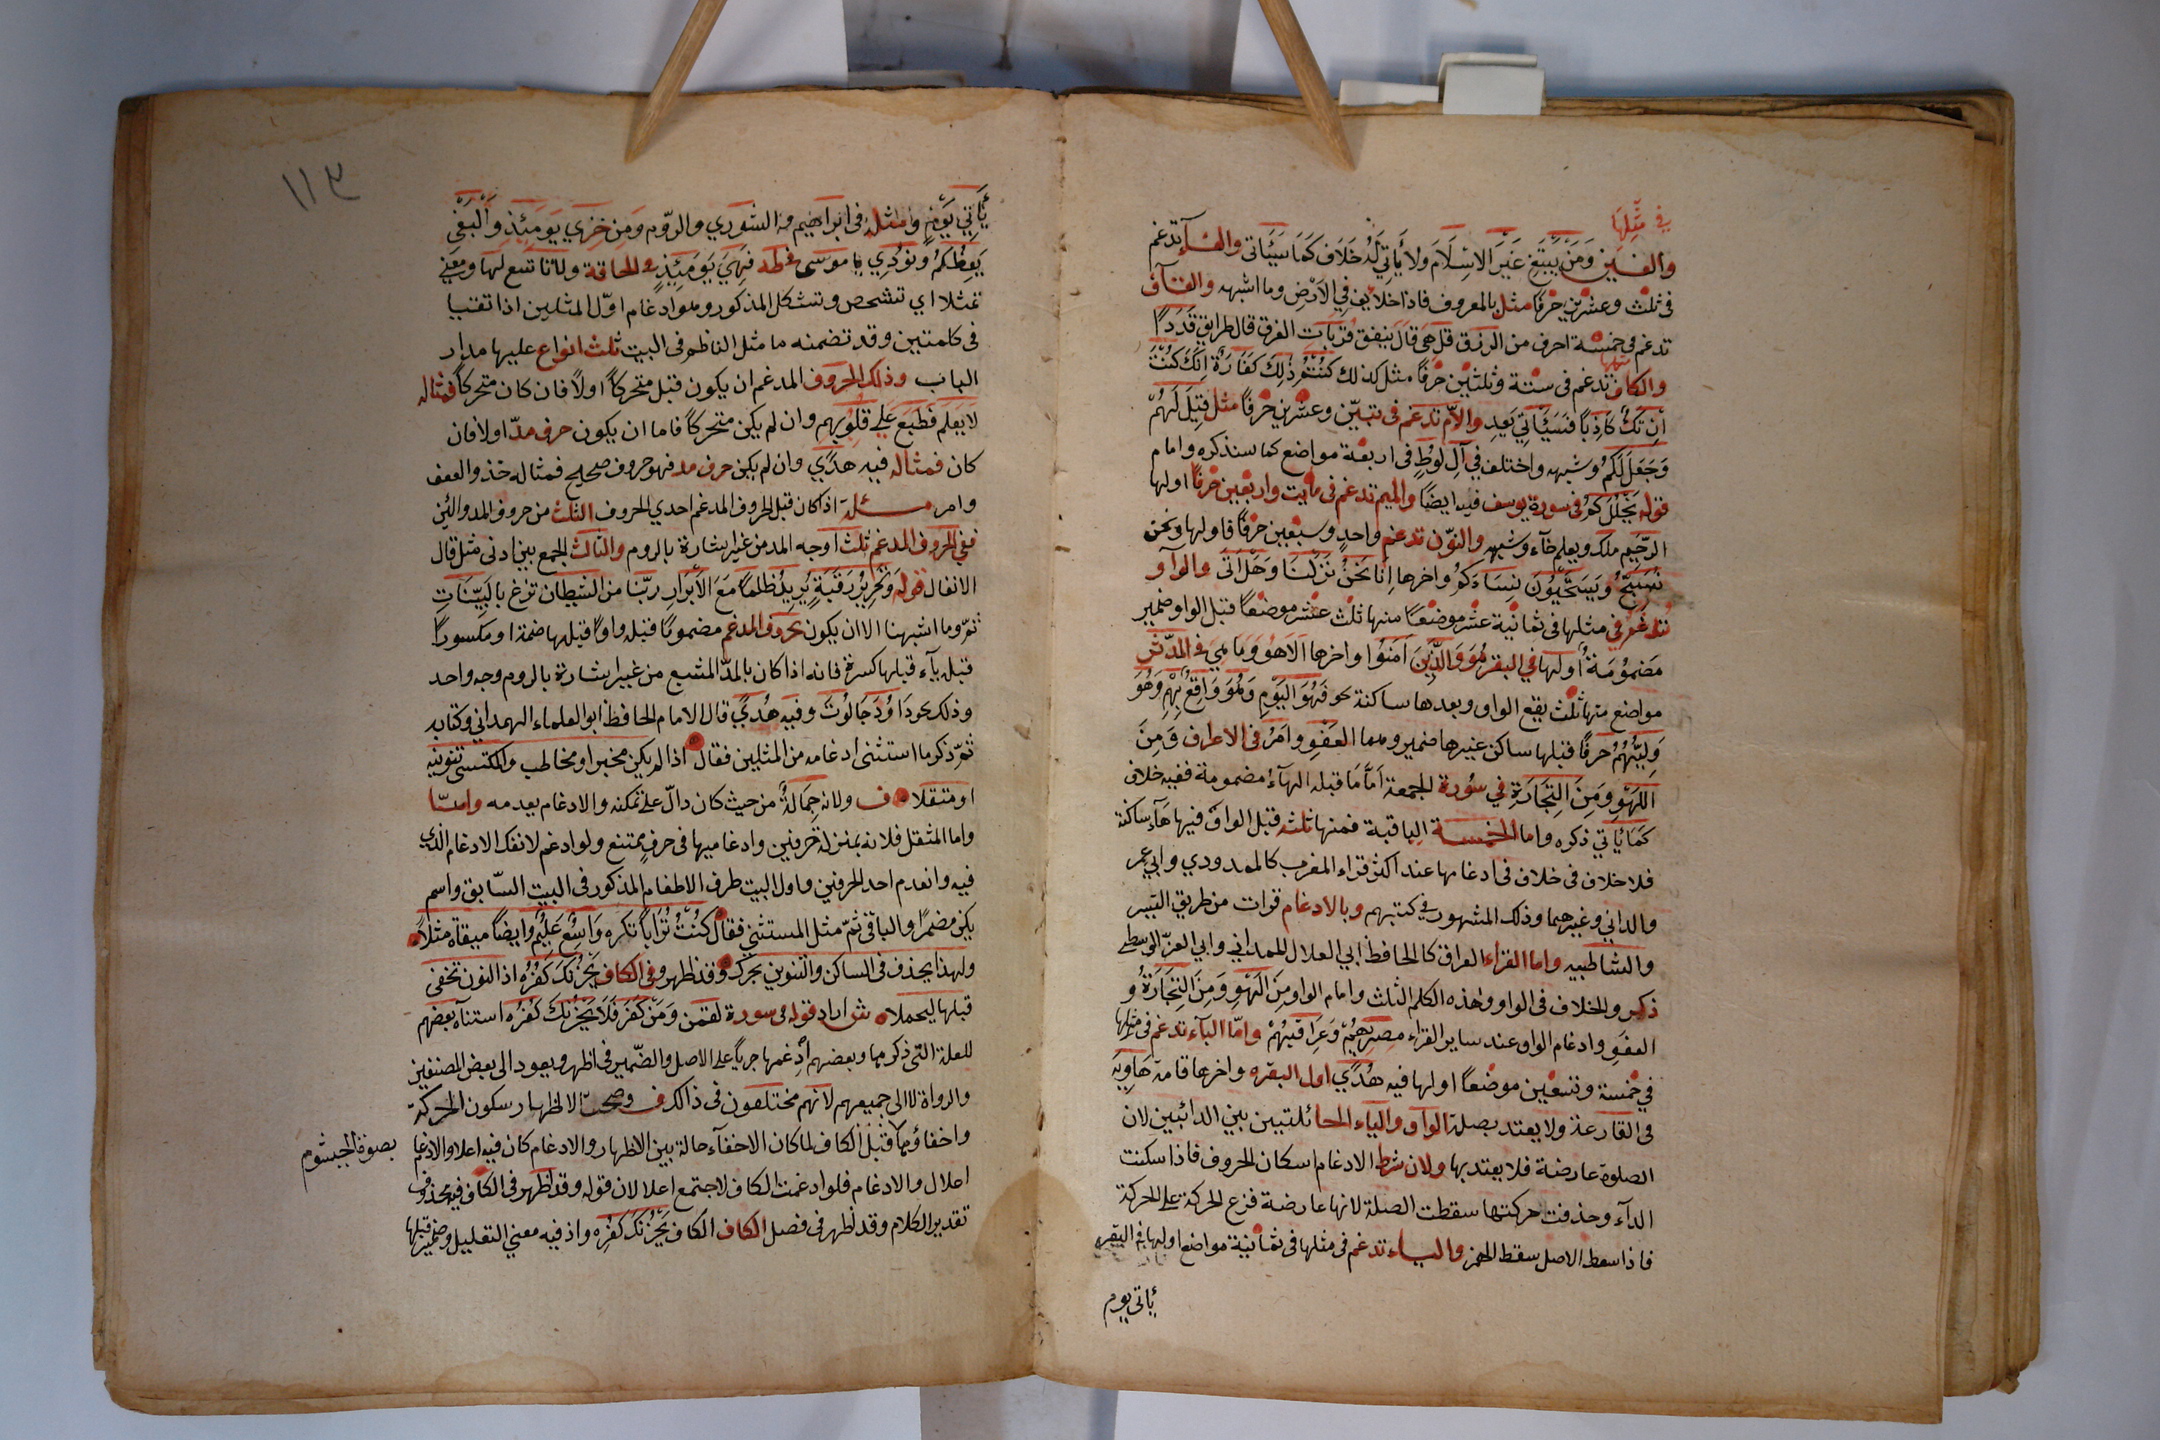 في مثلها
والغين وَمَنْ يَبْتَغِ غَيْرَ الاسْلَامَ ولا يَأتِي لَهُ خَلَاف كَمَا سَيَأتى والفآء تدغم
فى ثلث وعشرين حرفًا مثل بالمعروف فاذا خلايف فِي الاَرْضِ وما اشبهه والقآف
تدغم فى خمسة احرف من الرزق قل هى قال ينفق قربات الغرق قال طرايق قدَدًا
والكاف تدغم فى ستة وثلثين حرفًا مثل كذلك كنتم ذلِكَ كفارة انكَ كُنْتَ
أن تَكُ كَاذِبًا فَسَيَأتِي بَعِيد واللّام تدغم فى وعشرين حرفًا مثل قِيلَ لَهُمْ
وَجَعَلَ لَكُمْ وشبهه واختلف فِي آلِ لُوطٍ فى اربعة مواضع كما سنذكره وامام
قوله يَخْلُ لَكُمْ فى سورة يوسف فيه ايضًا والميم تدغم فى مايت واربعين حرفًا اولها
الرَّحيم ملك ويعلم جآء وشبهه والنّون تدغم واحدٍ وسبعين حرفًا فاولها ونحن
نُسَبِّحُ وَيَسْتَحْيُونَ نِسَاءَكُمْ واخرها اِنَّا نَحْنُ نَزَّلْنَا وَهَلْ اَتَى والواو
تدغم في مثلها فى ثمانية عشر موضعًا منها ثلث عشر موضعًا قبل الواو ضمير
مَضمُومَة أولها فِي البقر هُوَ وَالَّذِينَ آمَنُوا واخرها اِلَا هُوَ وَمَا هِيَ فى المدّثر
مواضع منها ثلث يقع الواو وبعدها ساكنة نحو فَهُوَ اليَوْمِ وَهُوَ وَاقِعٌ بِهِمْ وَهُوَ
وَلِيُّهُمْ حرفًا قبلها ساكن غيرها ضمير وهما العَفْوِ وامَرْ فى الاعراف وَمِنَ
اللَّهْوِ وَمِنَ التِجَارَةِ في سُورة الجمعة اَمَّا مَا قبله الهآء مضمومة ففيه خلاف
كَمَا يَأتي ذكره واما الخمسة الباقية فمنها ثلثه قبل الواو فيها هَآء ساكنة
فلا خلاف فى خلاف فى ادغامها عند اكثر قراء المغرب كالمهدودي وابى عمر
والداني وغيرهما وذلك المشهور في كتبهم وبالادغام قرات من طريق التيسر
والشاطبيه واما القراء العراق كالحافظ ابي العلال للهمداني وابي العزّ الوسطي
ذكر والخلاف فى الواو وهذه الكلم الثلث وامام الواو مِنَ الَهْوِ وَمِنَ التِّجَارَةُ و
العفو وادغام الواو عند ساير القراء مصيرهم وَعِرَاقيهُمْ وامّا البآء تدغم فى مثلها
في خمسة وتسعين موضعًا اولها فيه هُدًي اول البقره واخرها قامة هَاوِيَة
فى القارعة ولا يعتد بصلة الواو والياء المحائلتيين بين الدائبين لان
الصلوة عارضة فلا يعتد بها ولان شرط الادغام اسكان الحروف فاذا سكنت
الدآء وحذفت حركتها سقطت الصلة لانها عارضة فزع الحركة على الحركة
فاذا سعط الاصل سقط الهمز والياء تدغم فى مثلها فى ثمانية مواضع اولها فى البقره
يأتى يوم
١١٣
يَأتي يَوْمٍ وامثله فى ابراهيم مه الشوري والروم وَمِن خِزي يَومَئِذٍ وَالْبَغْي
يَعِظُكُمْ ونُودِي يا موسى فى طه فهِيَ يَوَمَئِذٍ فى الحاقة ولانا نتبع لها ومعني
تمثلا اي تشخص وتتشكل المذكور وهو ادغام اوّل المثلين اذا تقنيا
فى كلمتين وقد تضمنه ما مثل الناظم فى البيت ثلث انواع عليها مدار
الباب وذلك الحروف المدغم ان يكون قبل متحركًا اولًا فان كان متحركًا فمثاله
لا يَعلم فطبَع عَلَي قلُوبهم وان لم يكن متحركًا فاما ان يكون حرف مدّ اولا فان
كان فمثاله فيه هدًي وان لم يكن حرف مد فهو حروف صحيح فمثاله خذ والعفو
وامر مسئلة اذا كان قبل الحروف المدغم احدي الحروف الثلث من حروف المد واللين
ففى الحروف المدغم ثلث اوجه المد من غير اشارة بالروم والثالث الجمع بين ادنى مثل قال
الانفال قوله وَتَحْرِيرُ رَقَبَةٍ يُرِيدُ ظلمًا مَعَ الاَبْرَارِ ربّنا من الشيطان تزغ بالبَيّنَات
ثمّ وما اشبهنا الا ان يكون حروف المدغم مضمومًا قبله واوًا قبلها ضمة او مكسورًا
قبله يآء قبلها كسرة فانه اذا كان بالمدّ المشبع من غير اشارة بالروم وجه واحد
وذلك نحو دَاوُدَ جَالُوتَ وفيه هُدًي قال الامام الحافظ ابو العلماء الهمداني وكتابه
ثمّ ذكر ما استثنى ادغامه من المثلين فقال اذا لم يكن مخبرا ومخاطب والمكتسى تنوينه
او متقلا ف ولانه جمالةٌ من حيث كان دالّ على تمكنه والادغام يعدمه وامّا
واما المثقل فلانه بمنزلة حرفين وادغاميها فى حرفٍ يمتنع ولو ادغم لانفك الادغام الذى
فيه وانعدم احد الحرفين واول البيت طرف الاطغام المذكور فى البيت السّابق واسم
يكن مضمرًا والباقى ثمّ مثل المستثني فقال كُنْتُ تُرَابًا تكره وَاسِعٌ عَلِيمٌ وايضًا ميقاة مثلًا
ولهذا يحذف فى الساكن والتنوين بحرك وقد ظهرو فى الكاف يَحْزُنْكَ كُفْرُه اذ النون تخفى
قبلها ليحملا ش اراد قوله فى سورة لقمن وَمَنْ كَفَرَ فَلَا يَحْزُنْكَ كُفْرُه استثناه بعضهم
للعلة التى ذكرها وبعضهم ادغمها جريًا على الاصل والضّمير فى اظهر ويعود الى بعض المصنفين
والرواة لا الى جميعهم لانهم مختلفون فى ذالك ف وصحت الاظهار سكون الحركة
واخفاؤها قبل الكاف لما كان الاخفآء حالة بين الاظهار والادغام كان فيه اعلا والادغام
بصوة الخيشوم
اعلال والادغام فلو ادغمت الكاف لاجتمع اعلالان قوله وقد اظهر فى الكاف فيه محذوف
تقدير الكلام وقد ظهر فى فصل الكاف الكاف يَحْزُنْكَ كفْرُه واذ فيه معني التقليل وضمير قبلها